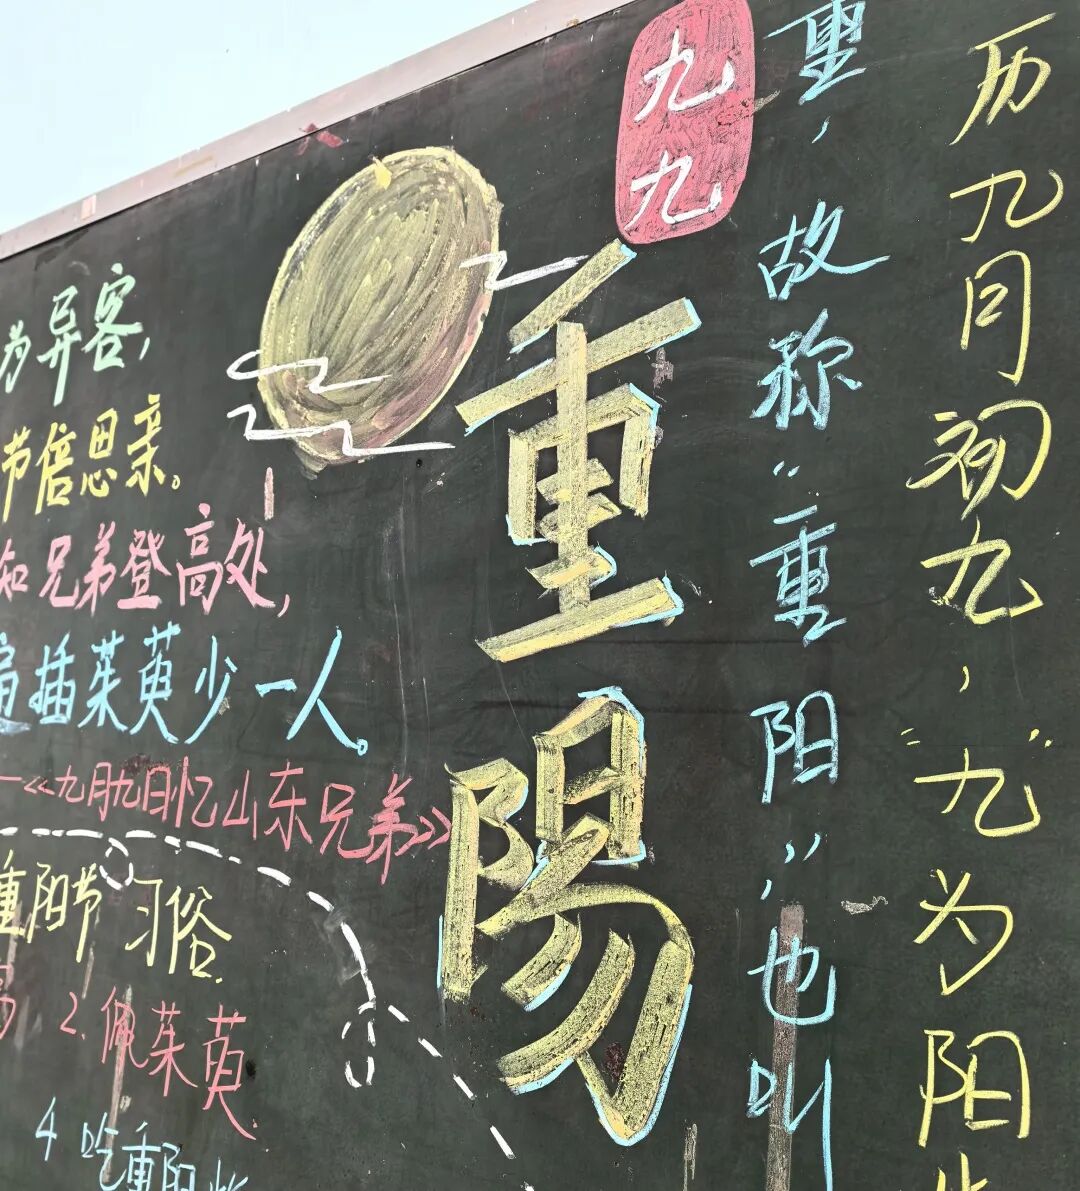 历九月初九，“九”为阳
重，故称“重阳”，也叫
九九
重陽
为异客，
节倍思亲。
知兄弟登高处，
遍插茱萸少一人。
—《九月九日忆山东兄弟》
重阳节习俗
2.佩茱萸
4.吃重阳